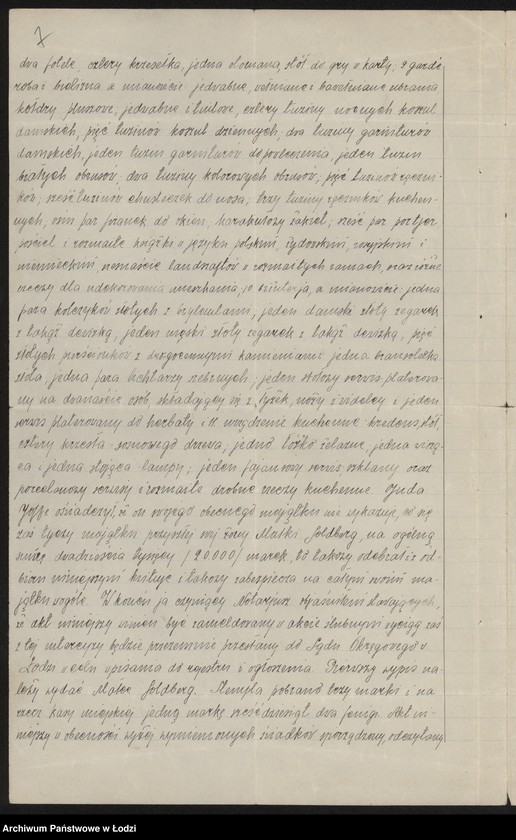 7
dwa fotele, cztery krzesełka, jedna otomana, stół do gry w karty; 2 garde
roba i bielizna a mianowicie jedwabne, wełniane i bawełniane ubrania
kołdry pluszowe, jedwabne i tiulowe, cztery tuziny nocnych koszul
damskich, pięć tuzinów koszul dziennych, dwa tuziny garniturów
damskich, jeden tuzin garniturów do powleczenia, jeden tuzin
białych obrusów; dwa tuziny kolorowych obrusów, pięć tuzinów ręczni-
ków; sześć tuzinów chusteczek do nosa, trzy tuziny ręczników kuchen-
nych, osm par firanek do okien, sześć par portjer
pościel i rozmaite książki w języku polskim, żydowskim, rosyjskim i
niemieckim, landszaftów w rozmaitych ramach, oraz różne
rzeczy dla udekorowania mieszkania; biżuterja, a mianowicie: jedna
para kolczyków złotych z brylantami, jeden damski złoty zegarek
z takąż dewizką, jeden męski złoty zegarek z takąż dewizką, pięć
złotych pierścionków z drogocennymi kamieniami jedna bransoletka
złota, jedna para lichtarzy srebrnych; jeden stołowy serwis platerowa-
ny na dwanaście osób składający się z łyżek, noży i widelcy i jeden
serwis platerowany do herbaty i urządzenie kuchenne: kredens, stół,
cztery krzesła sosnowego drzewa, jedno łóżko żelazne, jedna wisz-
ca i jedna stojąca lampy; jeden fajansowy serwis szklany oraz
porcelanowy serwisy i rozmaite drobne rzeczy kuchenne. Juda
Joffe oświadczył, że on swojego obecnego majątku nie wykazuje, co się
zaś tyczy majątku przyszłej swej żony Małki Goldberg, na ogólną
sumę dwadzieścia tysięcy /20000/ marek, to takowy odebrał z od-
bioru niniejszym kwituje i takowy zabezpiecza na całym swoim ma-
jątku wogóle. W końcu ja czyniący Notarjusz objaśniłem stawających,
że akt niniejszy winien być zameldowany w akcie ślubnym i wyciąg zaś
z tej intercyzy będzie przezemnie przesłany do Sądu Okręgowego w
Łodzi w celu wpisania do rejestru i ogłoszenia. Pierwszy wypis na-
leży wydać Małce Goldberg. Stempla pobrano trzy marki i na
rzecz kasy miejskiej jedną markę sześćdziesiąt dwa fenigi. Akt ni-
niejszy w obecności wyżej wymienionych świadków sporządzony, odczytany
Archiwum Państwowe w Łodzi